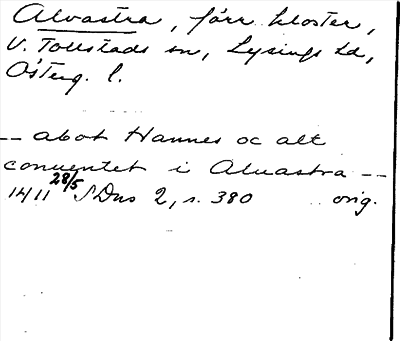 Alvastra, förr kloster,
V. Tollstads sn, Lysings hd,
Österg. l.
-- abot Hannes oc alt
conuentet i Aluastra --
1411 28/5 SDns 2, s. 380 orig.